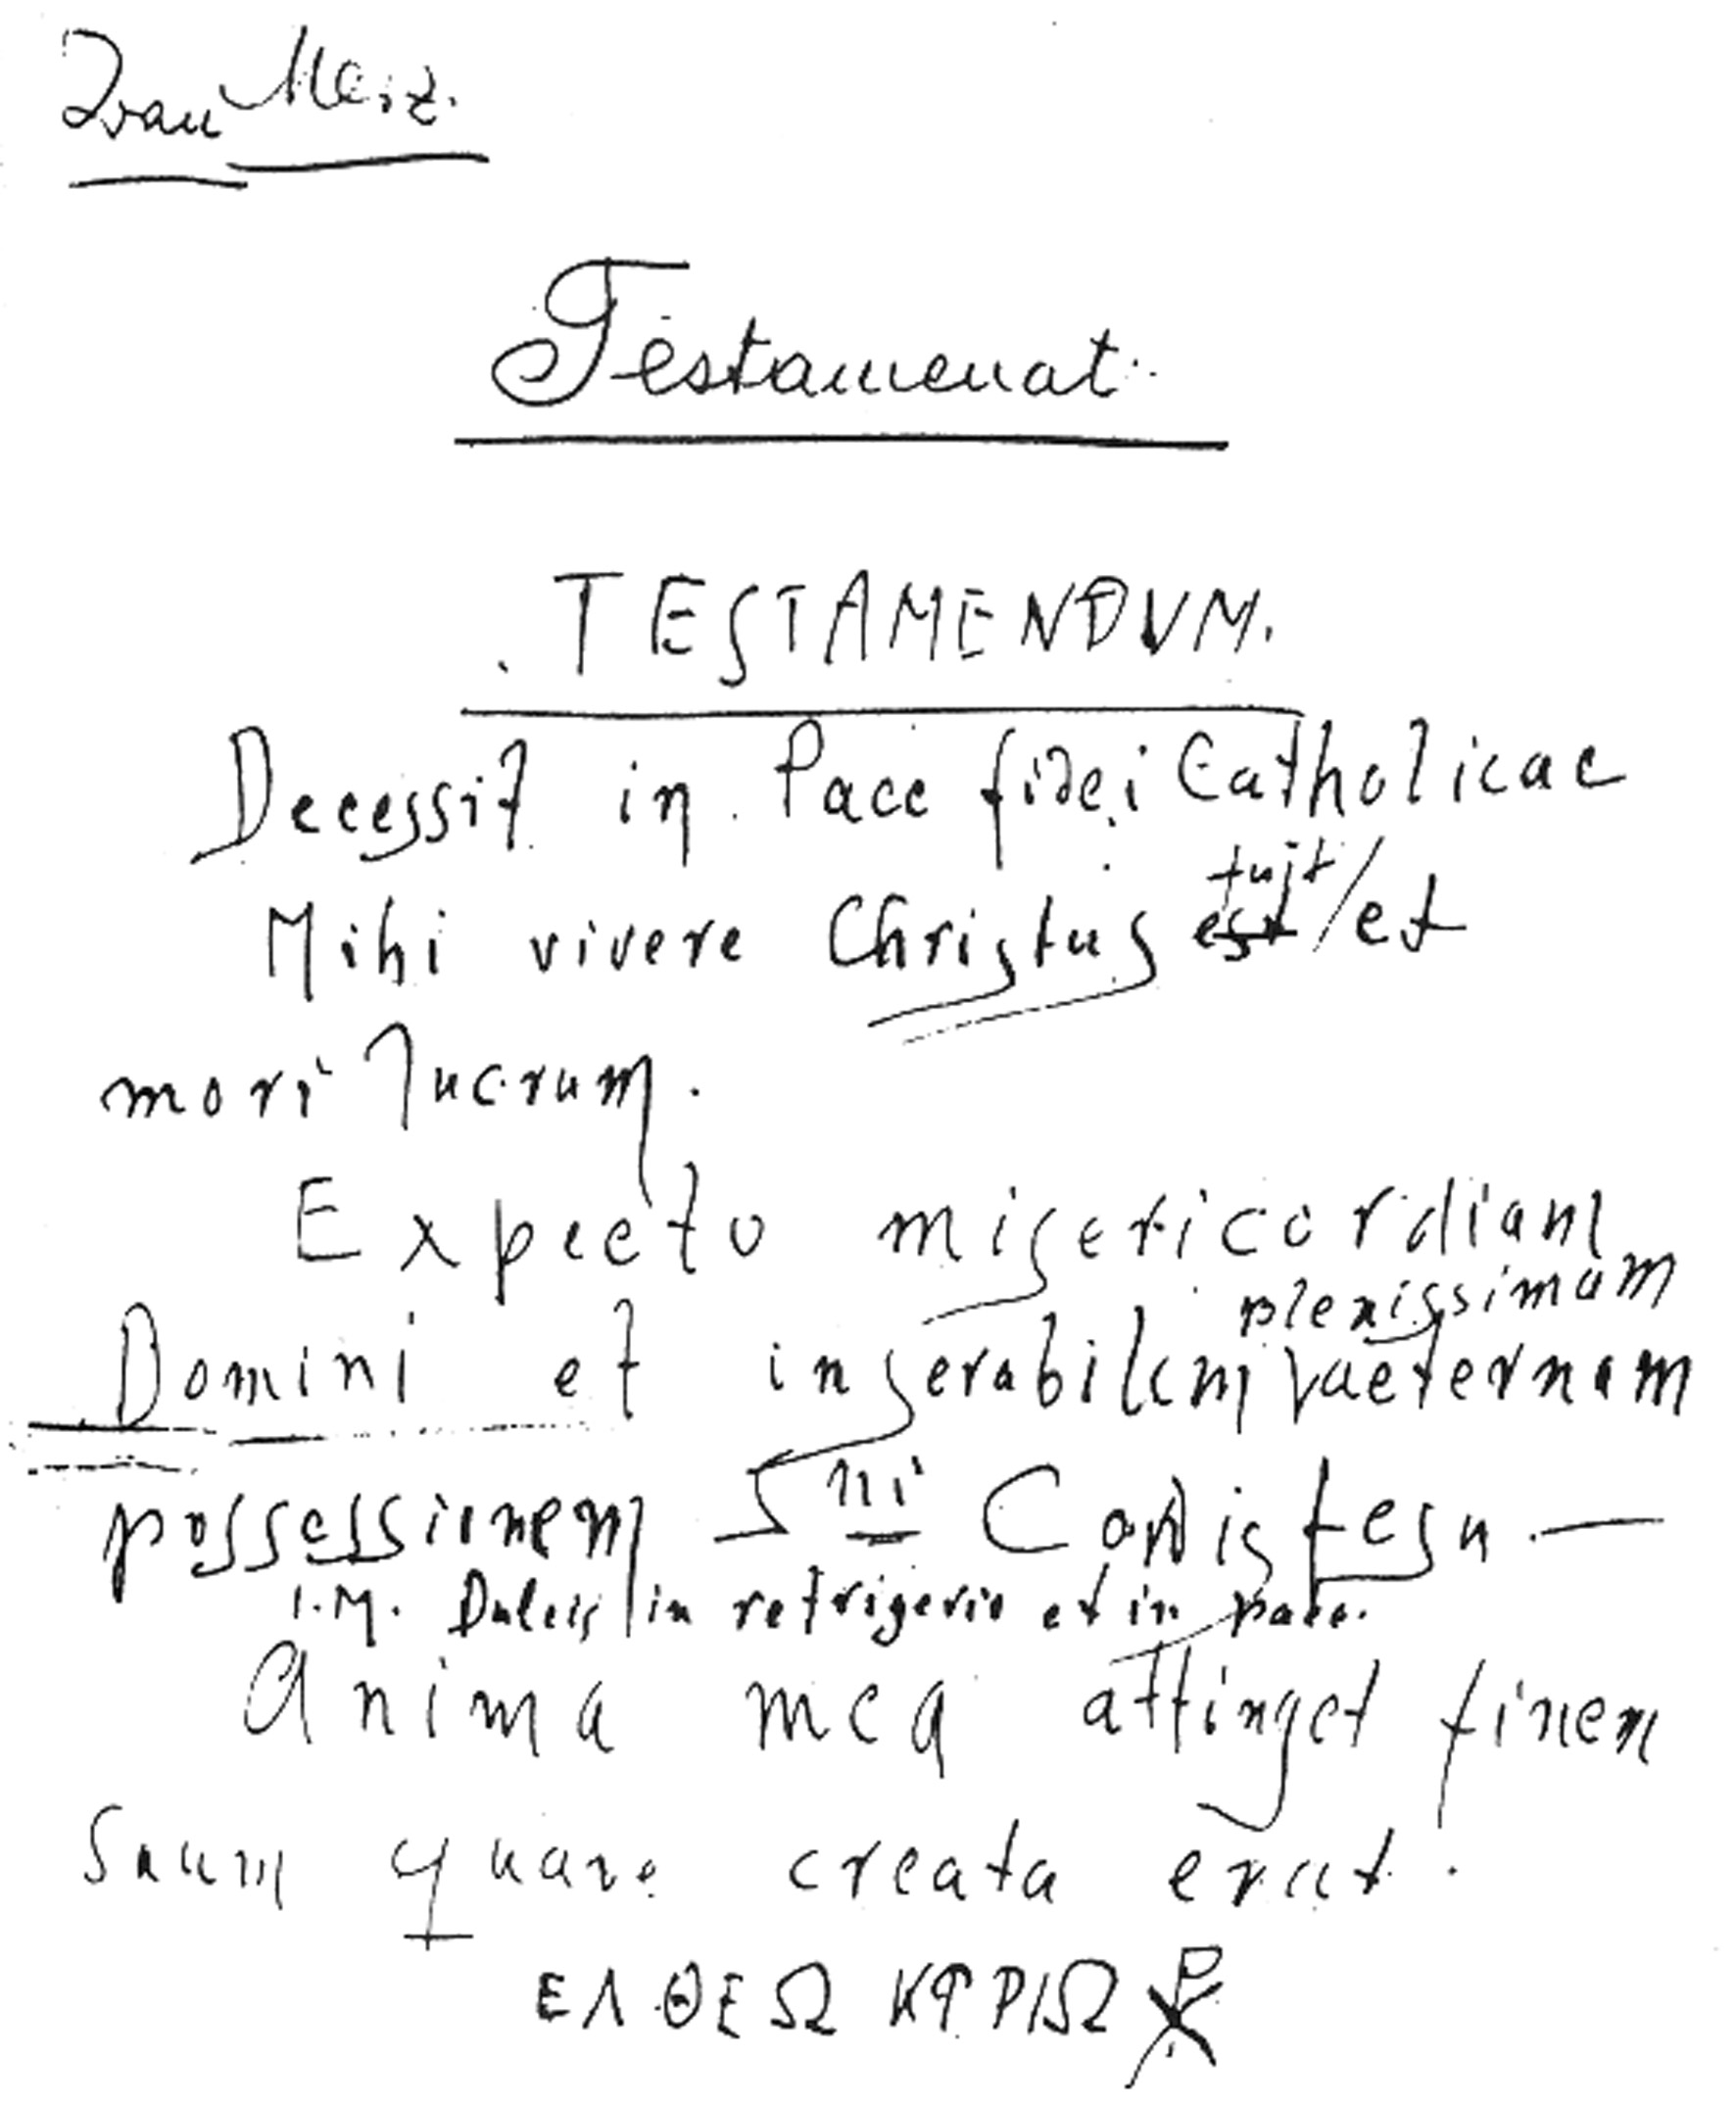 Ivan Merz.
Testamenat.
TESTAMENDVM.
Decessit in Pace fidei Catholicae
fuit
Mihi vivere Christus est / et
mori lucrum.
Expecto misericordiam
plenissimam
Domini et inserabilem aeternam
possessionem S ni Cordis Jesu. —
I. M. Dulcis in refrigerio et in pace.
Anima mea attinget finem
Suum quare creata erat.
ΕΛ ΘΕΩ ΚΥΡΙΩ ☧